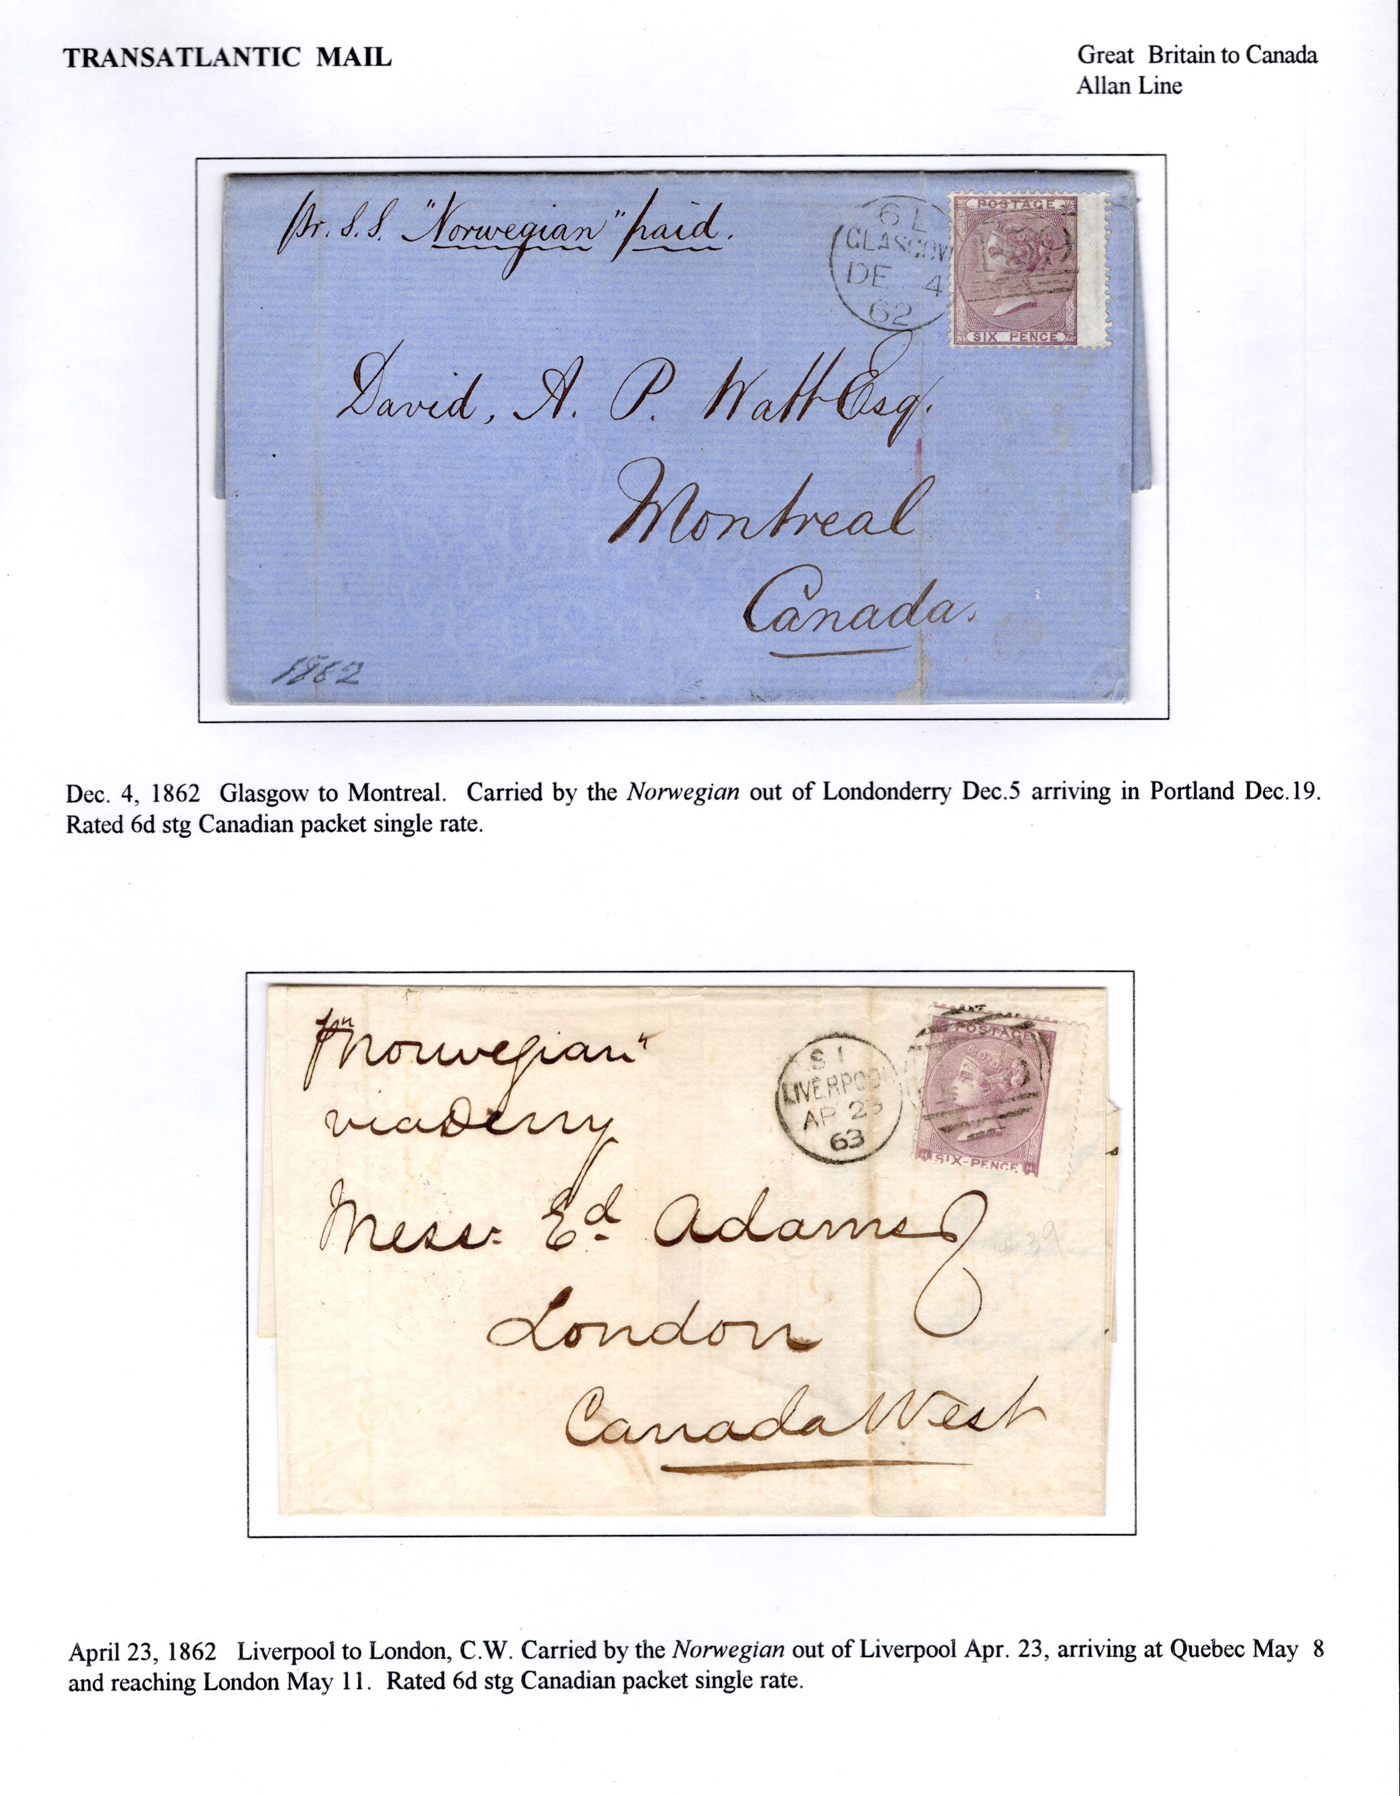 TRANSATLANTIC MAIL
Great Britain to Canada
Allan Line
pr. S.S. "Norwegian" paid.
6 L
GLASGOW
DE 4
62
POSTAGE
159
SIX PENCE
David, A. P. Watt Esq.
Montreal
Canada.
1862
Dec. 4, 1862 Glasgow to Montreal. Carried by the Norwegian out of Londonderry Dec.5 arriving in Portland Dec.19.
Rated 6d stg Canadian packet single rate.
p "Norwegian"
via Derry
S 1
LIVERPOOL
AP 23
63
POSTAGE
SIX-PENCE
Mess: Ed. Adams
London
Canada West
39
April 23, 1862 Liverpool to London, C.W. Carried by the Norwegian out of Liverpool Apr. 23, arriving at Quebec May 8
and reaching London May 11. Rated 6d stg Canadian packet single rate.